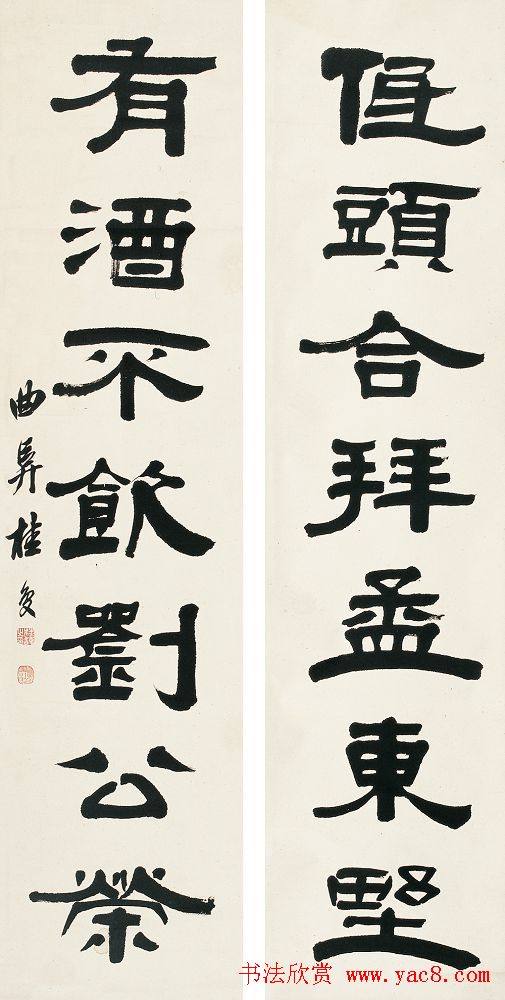 低頭合拜孟東野
有酒不飲劉公榮
曲阜桂馥
书法欣赏 www.yac8.com